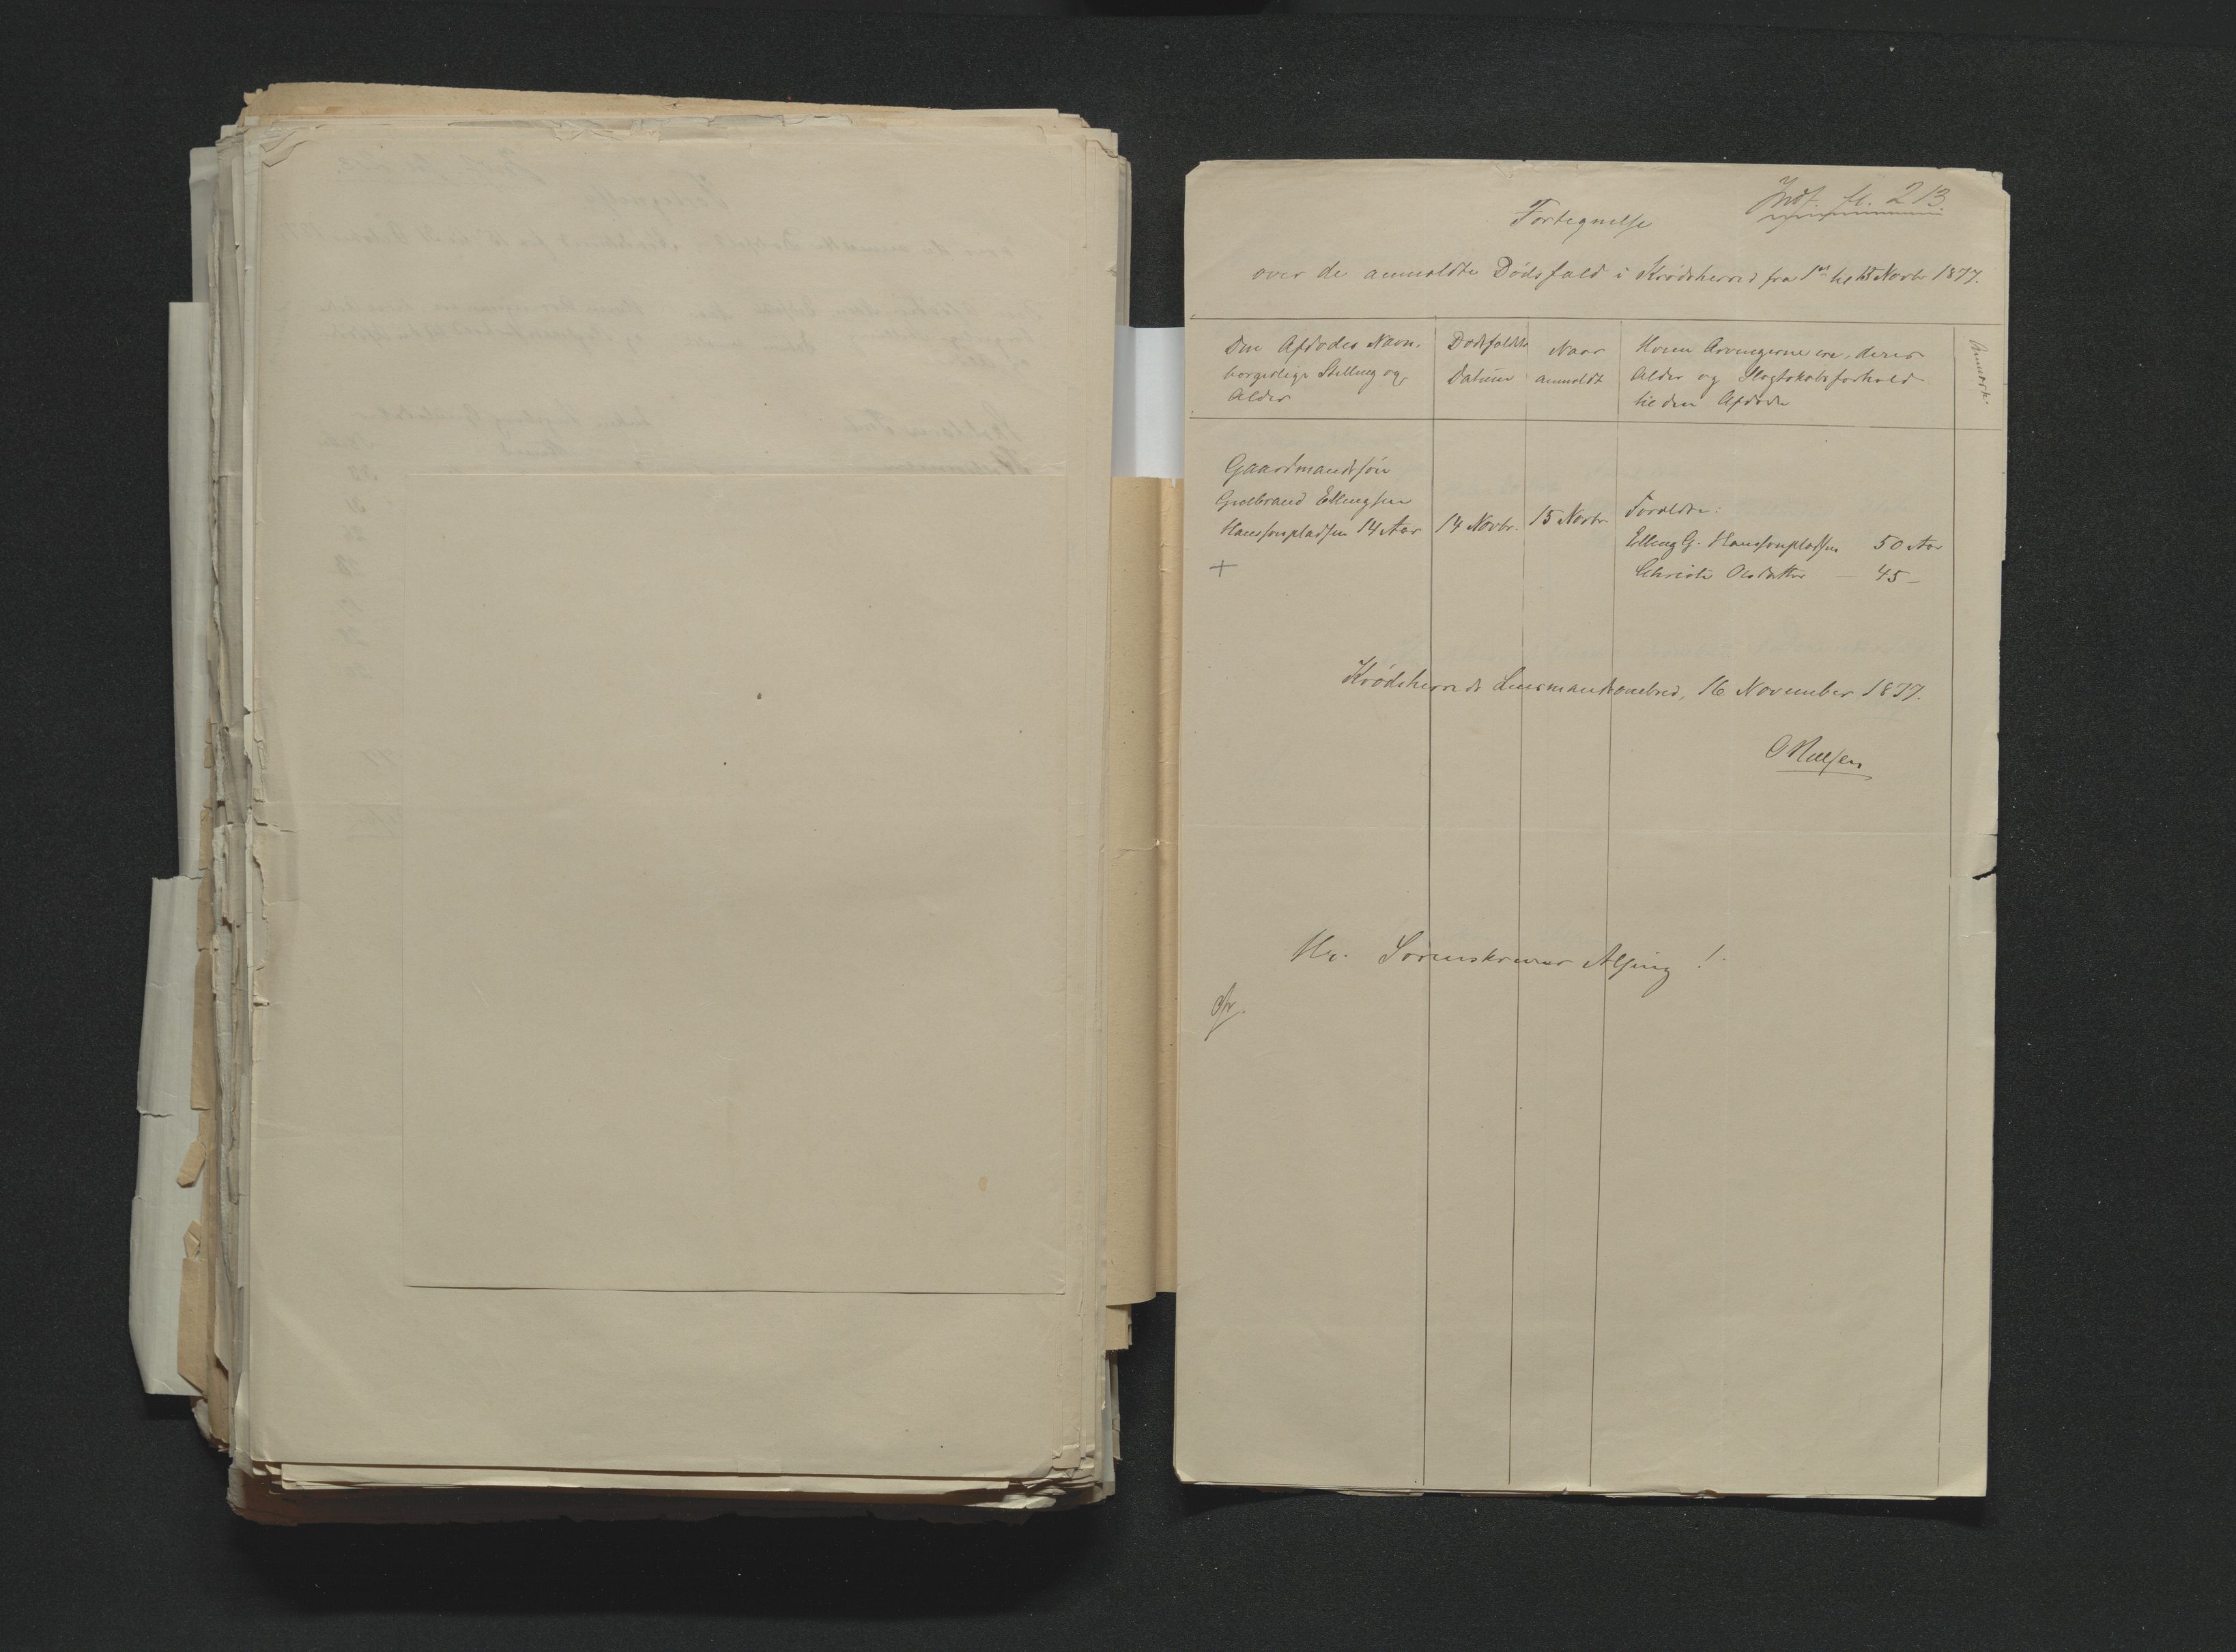 Indf. fl. 213.
Fortegnelse
over de anmeldte Dødsfald i Krødsherred fra 1st til 15 Novbr 1877.
Den Afdødes Navn,
borgerlige Stilling og
Alder
Dødsfaldets
Datum
Naar
anmeldt
Hvem Arvingerne ere, deres
Alder og Slægtskabsforhold
til den Afdøde
Anmærk.
Gaardmandssøn
Gulbrand Ellingsen
Hanssonpladsen 14 Aar
14 Novbr.
15 Novbr.
Forældre:
Elling G. Hanssonpladsen 50 Aar
Christi Olsdatter — 45 —
+
Krødsherreds Lensmandsombud, 16 November 1877.
O Nilsen
Hr. Sorenskriver Alsing!